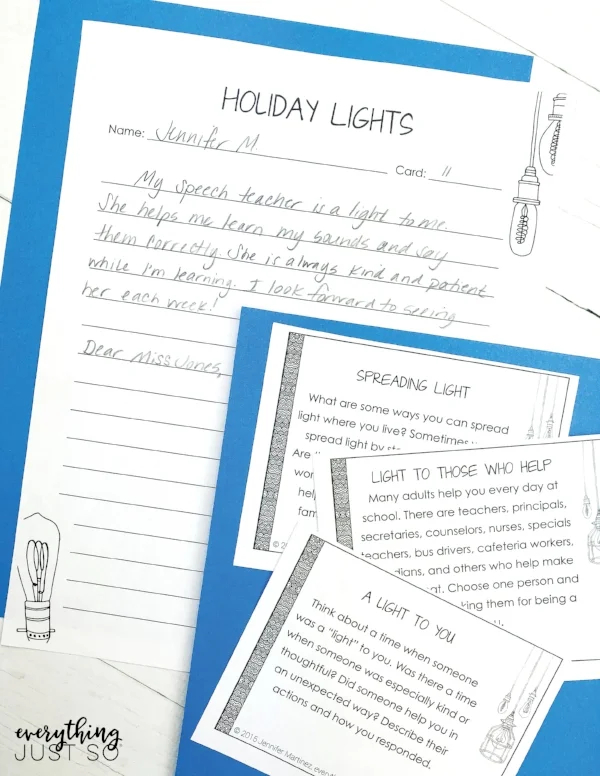 HOLIDAY LIGHTS
Name: Jennifer M.
Card: 11
My speech teacher is a light to me.
She helps me learn my sounds and say
them correctly. She is always kind and patient
while I'm learning. I look forward to seeing
her each week!
Dear Miss Jones,
SPREADING LIGHT
What are some ways you can spread
light where you live? Sometimes
spread light by
Are
wor
hel
fam
© 2
LIGHT TO THOSE WHO HELP
Many adults help you every day at
school. There are teachers, principals,
secretaries, counselors, nurses, specials
teachers, bus drivers, cafeteria workers,
dians, and others who help make
at. Choose one person and
king them for being a
A LIGHT TO YOU
Think about a time when someone
was a "light" to you. Was there a time
when someone was especially kind or
thoughtful? Did someone help you in
an unexpected way? Describe their
actions and how you responded.
© 2015 Jennifer Martinez, every
everything
JUST SO